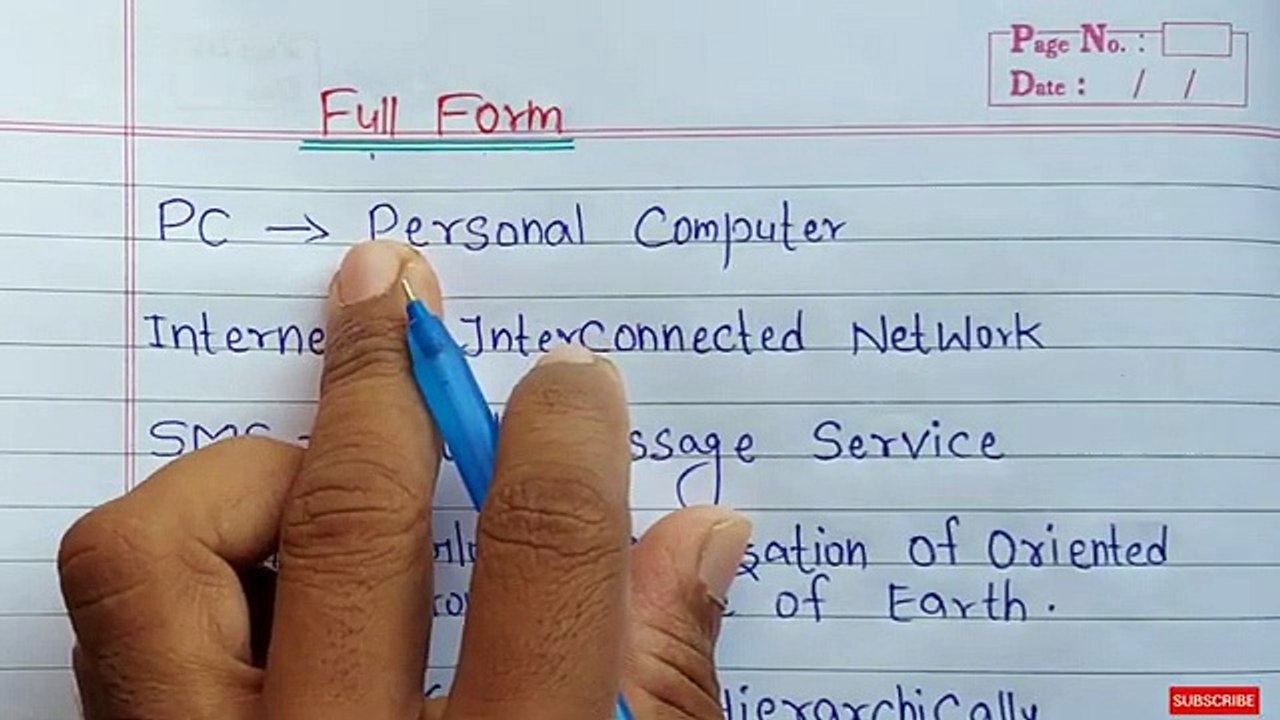 Page No. :
Date : / /
Full Form
PC → Personal Computer
Interne InterConnected NetWork
SMS ssage Service
sation of Oriented
of Earth.
Hierarchically
SUBSCRIBE